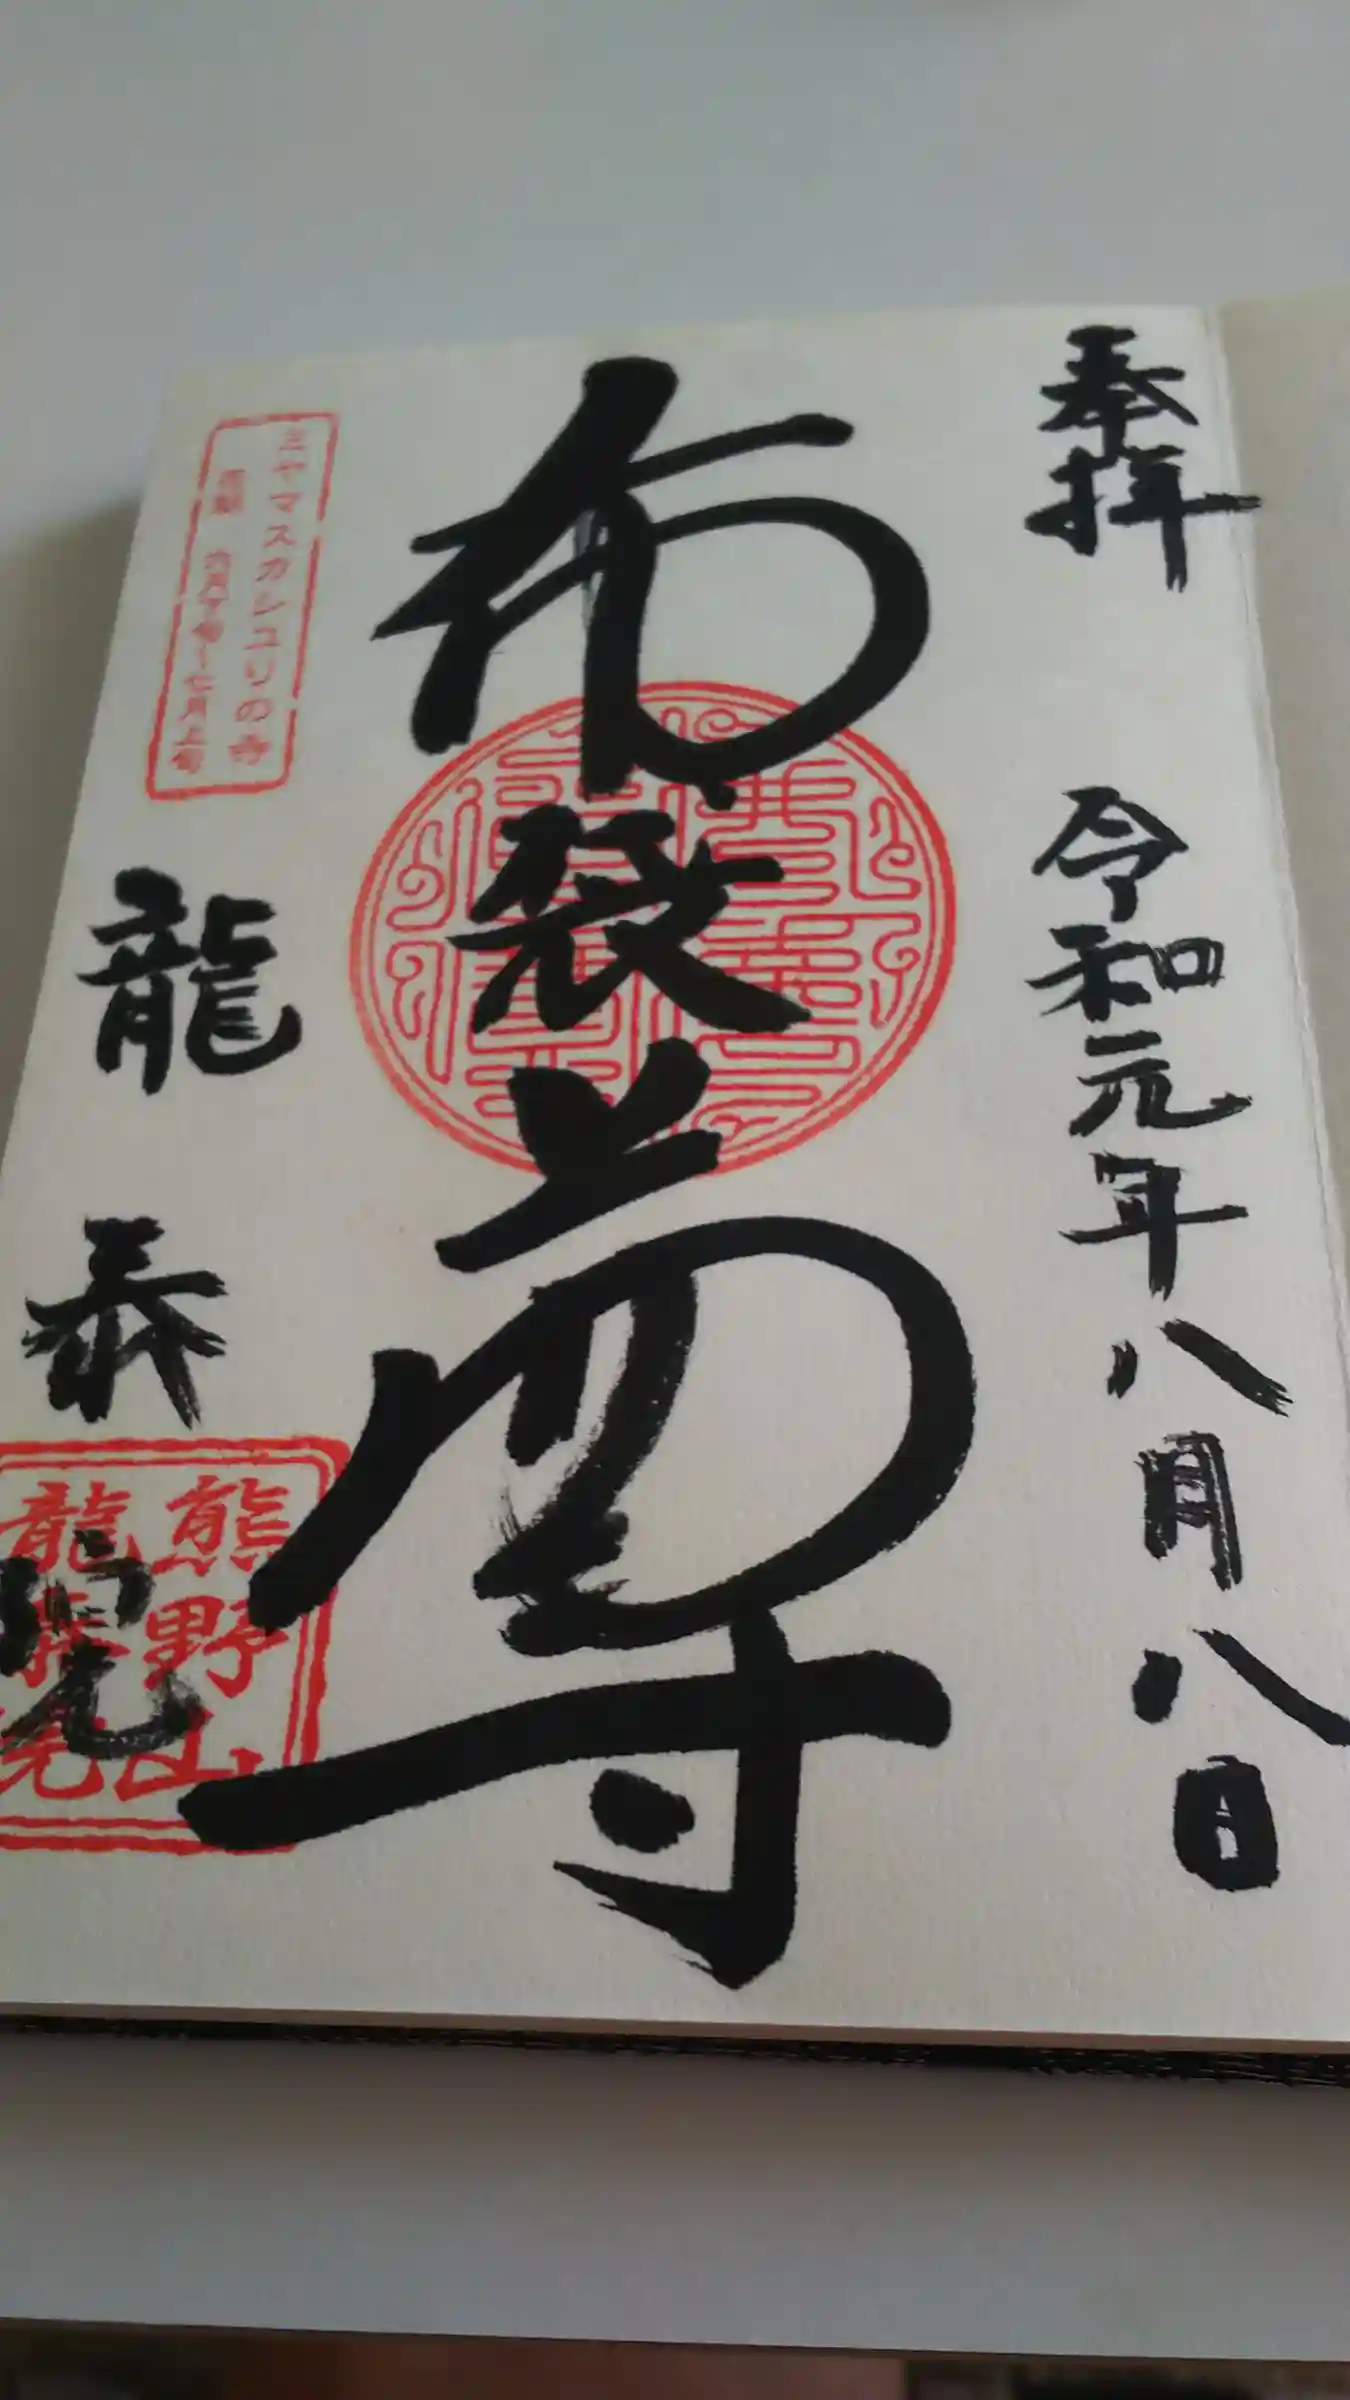 奉拝
令和元年八月八日
布袋尊
ミヤマスカシユリの寺
花期 六月下旬〜七月上旬
龍泰院
熊野山
龍泰院